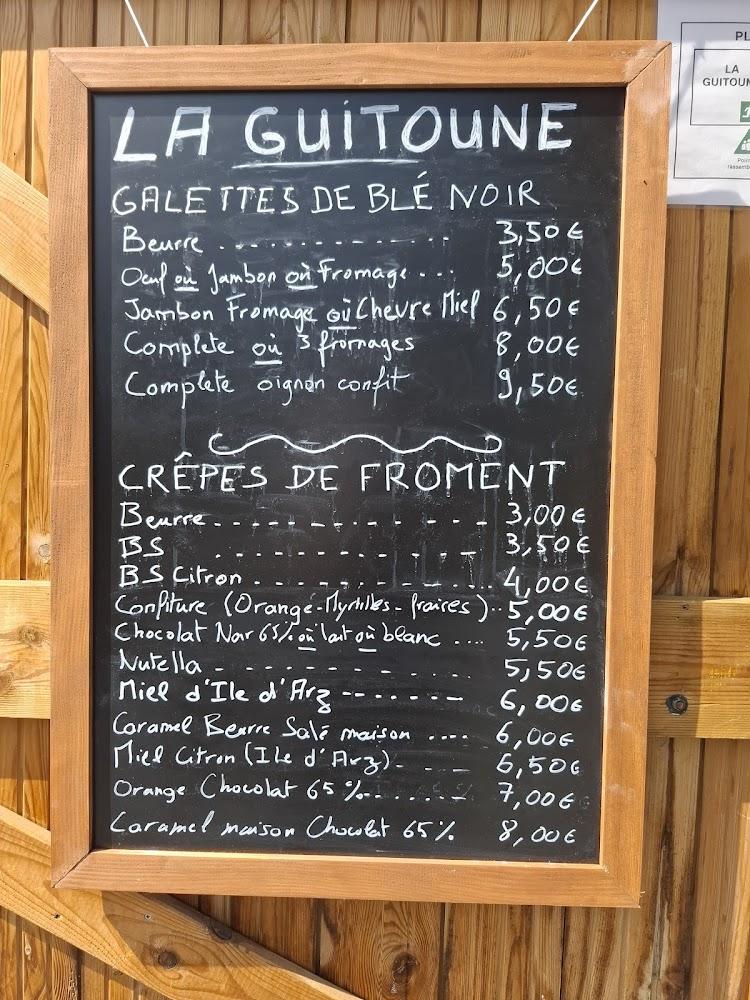 LA GUITOUNE
GALETTES DE BLÉ NOIR
Beurre .............. 3,50 €
Oeuf où Jambon où Fromage ... 5,00€
Jambon Fromage où Chevre Miel 6,50€
Complete où 3 fromages 8,00€
Complete oignon confit 9,50€
CRÊPES DE FROMENT
Beurre............. 3,00€
BS ............. 3,50€
BS Citron............. 4,00€
Confiture (Orange-Myrtilles-fraises)..5,00€
Chocolat Noir 65% où lait où blanc .... 5,50€
Nutella ............. 5,50€
Miel d'Ile d'Arz ....... 6,00€
Caramel Beurre Salé maison .... 6,00€
Miel Citron (Ile d'Arz)..... 6,50€
Orange Chocolat 65%....... 7,00€
Caramel maison Chocolat 65% 8,00€
PL
LA
GUITOUN
Point
rassemb